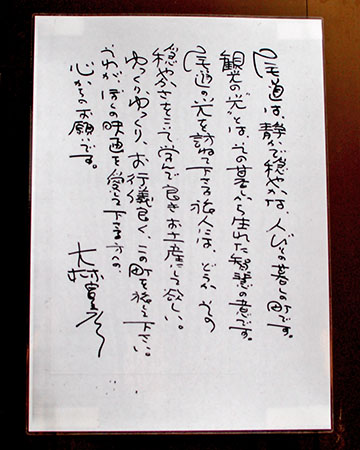 尾道は、静かで穏やかな、人びとの暮しの町です。
観光の“光”とは、その暮しから生れた智慧の意です。
尾道の光を訪ねて下さる旅人には、どうかその
穏やかさをこそ学んで良きお土産にして欲しい。
ゆっくりゆっくり、お行儀良く、この町を旅して下さい。
ぼくの映画を愛して下さる方への、
心からのお願いです。
大林宣彦